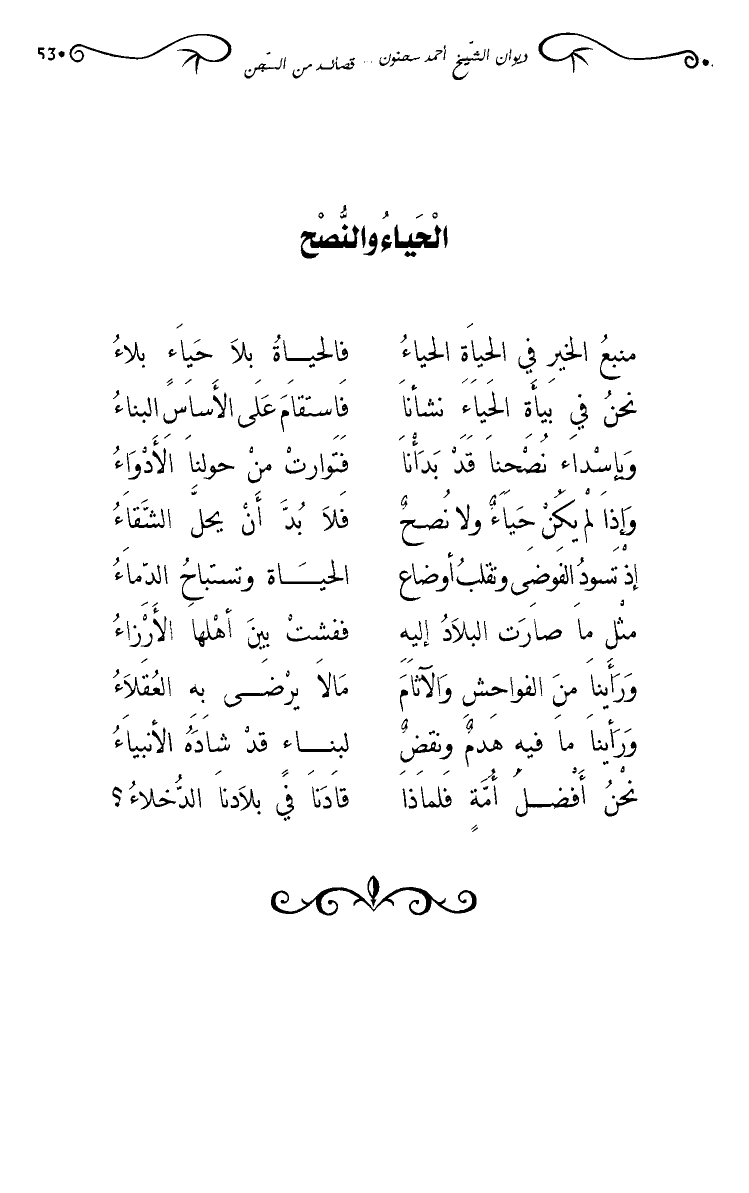 ديوان الشّيخ أحمد سحنون .. قصائد من السّجن 53
الْحَياءُ والنُّصْح
منبعُ الخيرِ في الحياَة الحياءُ فالحياةُ بلاَ حَياَء بلاءُ
نحنُ في بيأَة الحَياَء نشأناَ فَاستقامَ عَلى الأَساسَِ البناءُ
وَبإسْداَء نُصْحناَ قَدْ بَدَأْناَ فَتَوارتْ منْ حولناَ الأَدْوَاءُ
وَإذَا لْم يكُنْ حَيَاءٌ ولا نُصحٌ فَلاَ بُدَّ أَنْ يحلَّ الشَّقَاءُ
إذْ تَسودُ الفوضَى وتقلبُ أوضاع الحيَاة وتستباحُ الدّماءُ
مثْل ماَ صارَت البلاَدُ إليه ففشتْ بينَ أهْلهاَ الأَرْزاءُ
وَرَأيناَ منَ الفواحش وَالآثامَ مَالاَ يرْضَى به العُقلاَءُ
وَرَأيناَ ماَ فيه هدمٌ ونقضٌ لبناء قدْ شادَهُ الأنبياَءُ
نحْنُ أَفْضلُ أُمَّةٍ فَلماذَا قادَنَا فَي بلاَدناَ الدُّخلاءُ؟